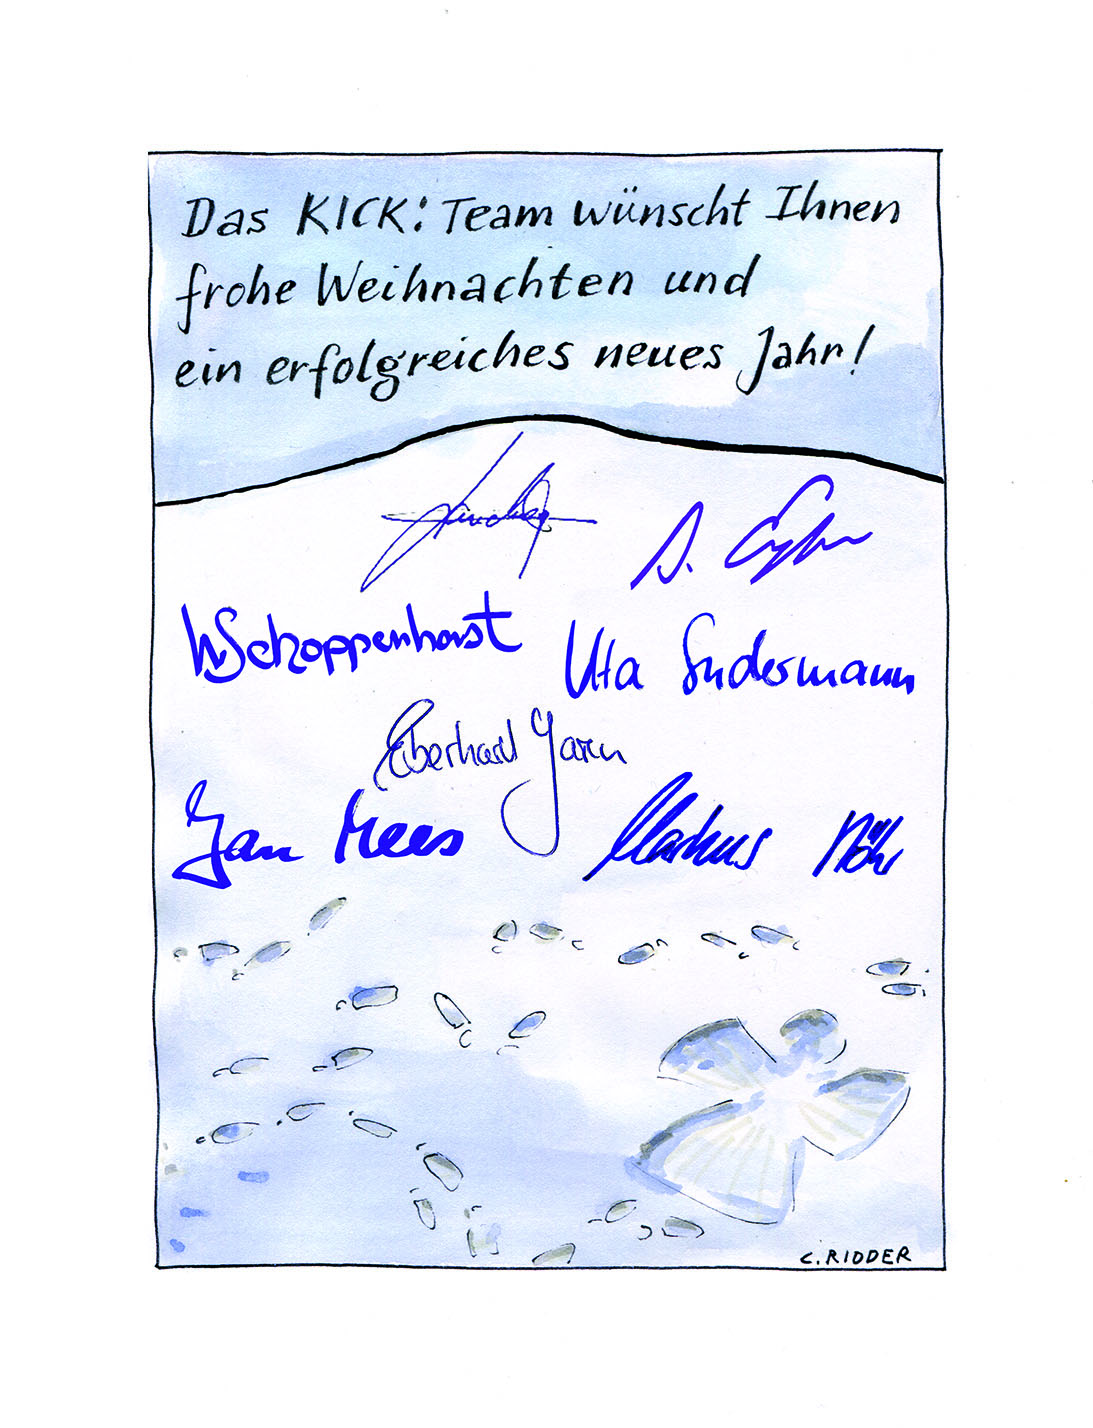 Das KICK: Team wünscht Ihnen
frohe Weihnachten und
ein erfolgreiches neues Jahr!
WSchoppenhorst
Uta Sudermann
Eberhard
Jan Mees
Markus Möhr
C. RIDDER